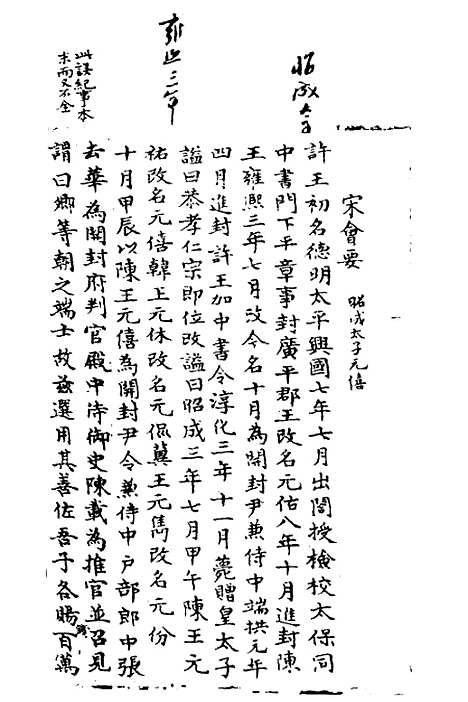 昭成太子
宋會要
昭成太子元僖
許王初名德明太平興國七年七月出閤授檢校太保同
中書門下平章事封廣平郡王改名元佑八年十月進封陳
王雍熙三年七月改今名十月為開封尹兼侍中端拱元年
四月進封許王加中書令淳化三年十一月薨贈皇太子
謚曰恭孝仁宗即位改謚曰昭成三年七月甲午陳王元
祐改名元僖韓王元休改名元侃冀王元雋改名元份
十月甲辰以陳王元僖為開封尹令兼侍中戶部郎中張
去華為開封府判官殿中侍御史陳載為推官並召見
謂曰卿等朝之端士故兹選用其善佐吾子各賜錢百萬
雍正三年
此誤紀事本
末而又不全